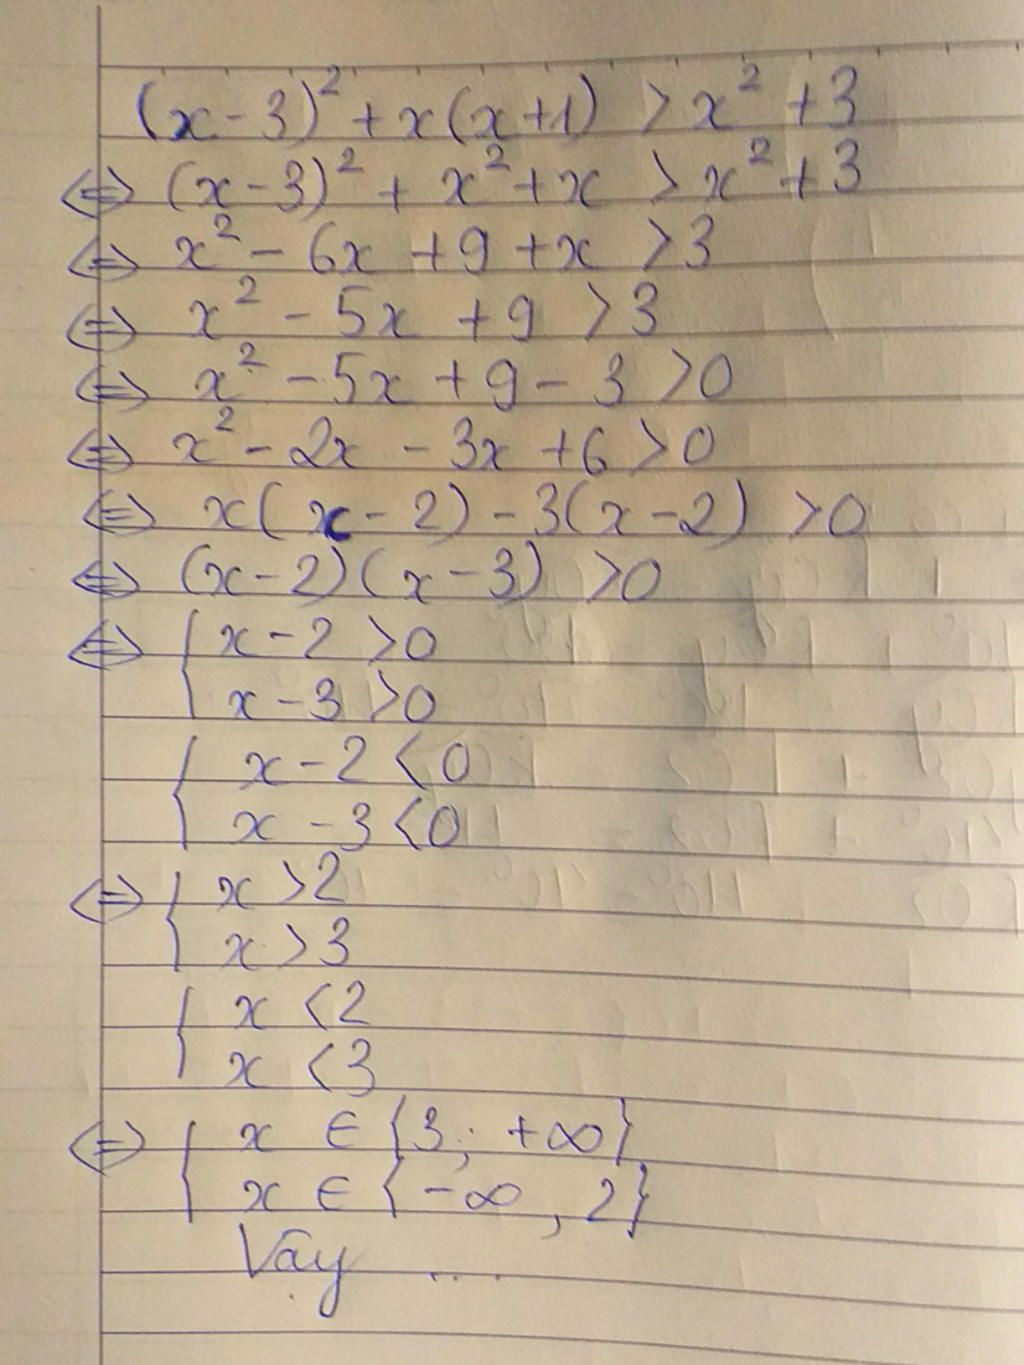 (x-3)² + x(x+1) > x² + 3
⇔ (x-3)² + x² + x > x² + 3
⇔ x² - 6x + 9 + x > 3
⇔ x² - 5x + 9 > 3
⇔ x² - 5x + 9 - 3 > 0
⇔ x² - 2x - 3x + 6 > 0
⇔ x(x-2) - 3(x-2) > 0
⇔ (x-2)(x-3) > 0
⇔ { x - 2 > 0
x - 3 > 0
{ x - 2 < 0
x - 3 < 0
⇔ { x > 2
x > 3
{ x < 2
x < 3
⇔ { x ∈ {3; +∞}
x ∈ {-∞, 2}
Vậy ....